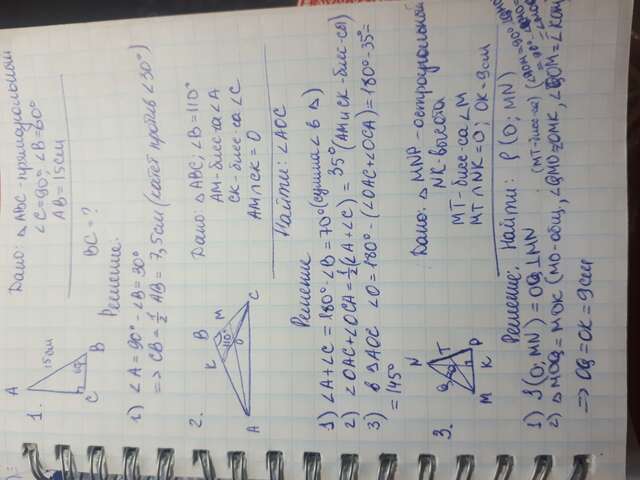 1.
A
15см
60°
C
B
Дано: △ABC - прямоугольный
∠C=90°, ∠B=60°
AB = 15см
BC = ?
Решение:
1) ∠A = 90° - ∠B = 30°
=> CB = 1/2 AB = 7,5см (катет против ∠30°)
2.
K
B
M
110°
A
C
Дано: △ABC, ∠B = 110°
AM - бисс-са ∠A
CK - бисс-са ∠C
AM ∩ CK = O
Найти: ∠AOC
Решение
1) ∠A + ∠C = 180° - ∠B = 70° (сумма ∠ в △)
2) ∠OAC + ∠OCA = 1/2 (∠A + ∠C) = 35° (AM и CK - бис-сы)
3) в △AOC ∠O = 180° - (∠OAC + ∠OCA) = 180° - 35° =
= 145°
3.
N
Q
O
T
M
K
P
Дано: △MNP - остроугольный
NK - высота
MT - бисс-са ∠M
MT ∩ NK = O; OK = 9см
Найти: ρ (O; MN)
Решение:
1) ρ (O; MN) = OQ ⊥ MN
2) △MOQ = MOK (MO - общ, ∠QMO = ∠OMK, ∠QOM = ∠KOM
(MT - бисс-са)
=> OQ = OK = 9см